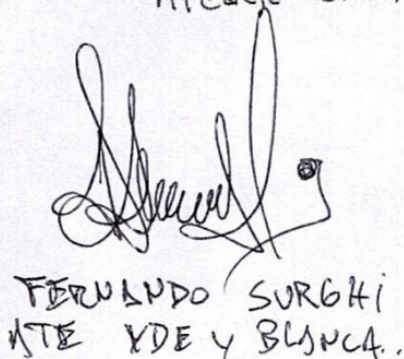 FERNANDO SURGHI
ATE XDE y BLANCA..